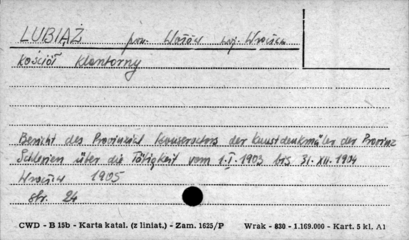 LUBIĄŻ pow. Wołów woj. Wrocław
Kościół klasztorny
Bericht des Provinzial Konservators der Kunstdenkmäler der Provinz
Schlesien über die Tätigkeit vom 1.I.1903 bis 31.XII.1904
Wrocław 1905
str. 24
CWD - B 15b - Karta katal. (z liniat.) - Zam. 1625/P Wrak - 830 - 1.169.000 - Kart. 5 kl. A1